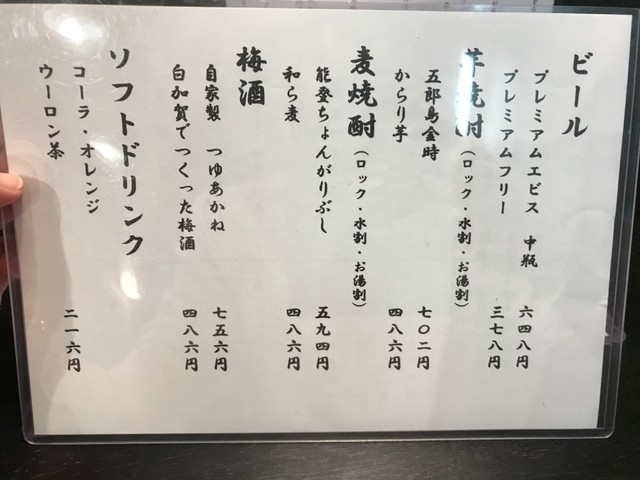 ビール
プレミアムエビス 中瓶 六四八円
プレミアムフリー 三七八円
芋焼酎（ロック・水割・お湯割）
五郎島金時 七〇二円
からり芋 四八六円
麦焼酎（ロック・水割・お湯割）
能登ちょんがりぶし 五九四円
和ら麦 四八六円
梅酒
自家製 つゆあかね 七五六円
白加賀でつくった梅酒 四八六円
ソフトドリンク
コーラ・オレンジ
ウーロン茶 二一六円